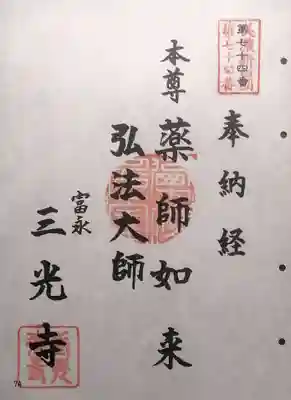 第七十四番
奉納経
本尊 薬師如来
弘法大師
富永
三光寺
74